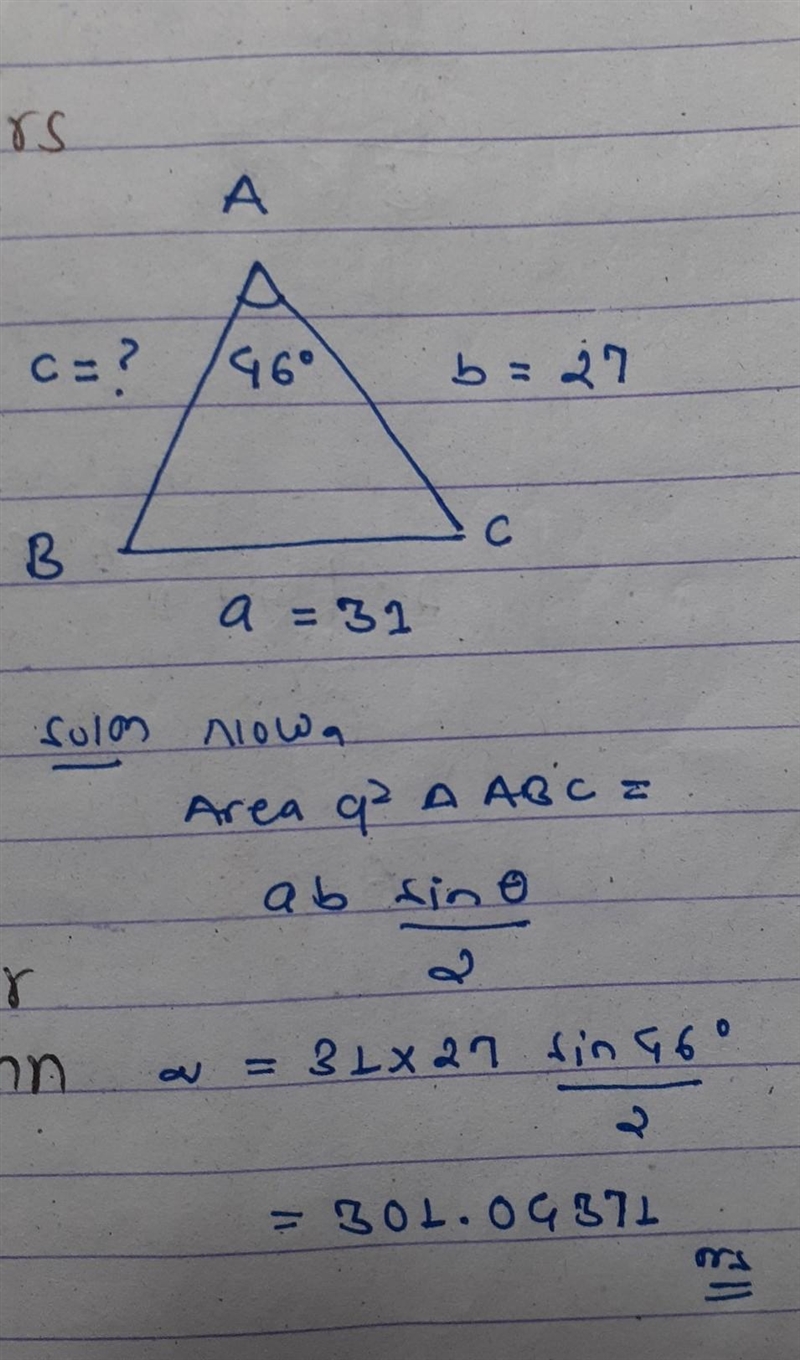 rs
A
c = ?
46°
b = 27
B
C
a = 31
Soln
Area of Δ ABC =
ab sin θ
2
r
nn
= 31 × 27 sin 46°
2
= 301.04371